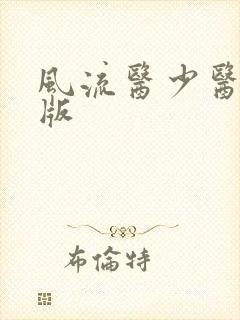 風流醫少醫
版
布倫特